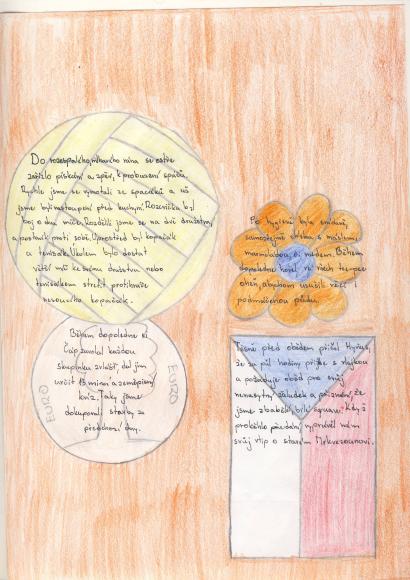 Do rozespalého, mlhavého rána se ostře
zařízlo pískání a zpěv, k probuzení spáčů.
Rychle jsme se vymotali ze spacáků a už
jsme byli nastoupeni před kuchyní. Rozcvička byl
boj o dva míče. Rozdělili jsme se na dvě družstva,
a postavili proti sobě. Uprostřed byl kopačák
a tenisák. Úkolem bylo dostat
větší míč ke svému družstvu nebo
tenisákem strefit protihráče
nesoucího kopačák.
Po hygieně byla snídaně,
samozřejmě vánočka s máslem,
marmeládou, či medem. Během
dopoledne hořel ve všech teepee
oheň, abychom usušili věci i
podmáčenou půdu.
Během dopoledne si
Čáp zavolal každou
skupinku zvlášť, dal jim
určit 15 minci a zeměpisný
kvíz. Taky jsme
dokupovali stavby za
předchozí dny.
EURO
EURO
Těsně před obědem přišel Hynys,
že za půl hodiny přijde s vlajkou
a požaduje oběd pro svůj
nenasytný žaludek a přiznání, že
jsme zbabělí, bílé squaw. Když
proběhlo předání, vyprávěl nám
svůj vtip o starém Mrkvezounovi.